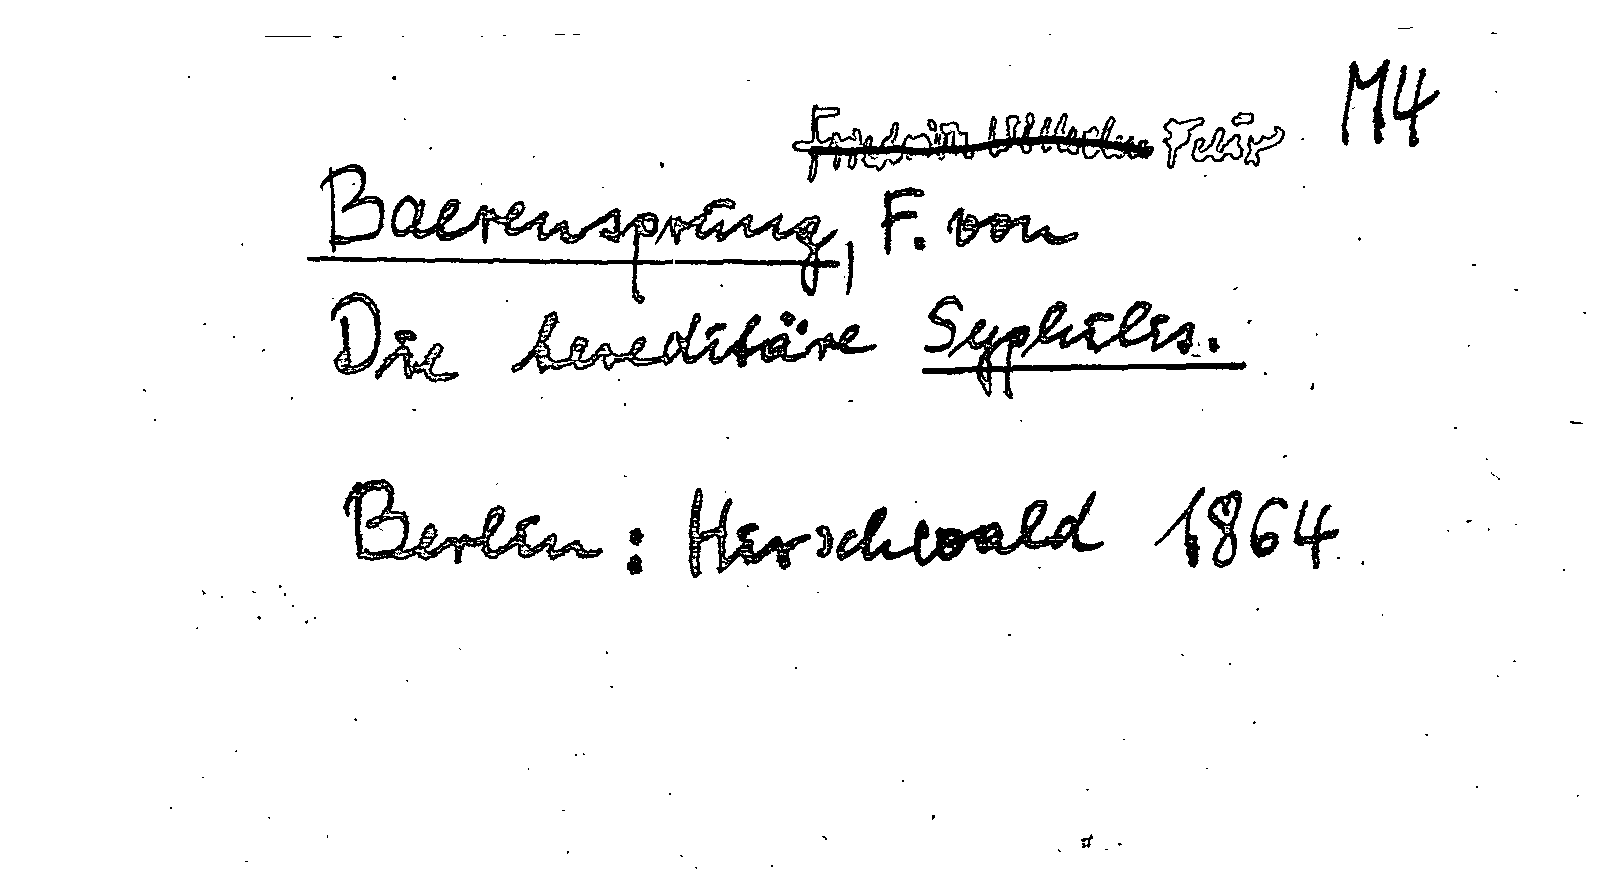 M4
Friedrich Wilhelm Felix
Baerensprung, F. von
Die hereditäre Syphilis.
Berlin: Hirschwald 1864